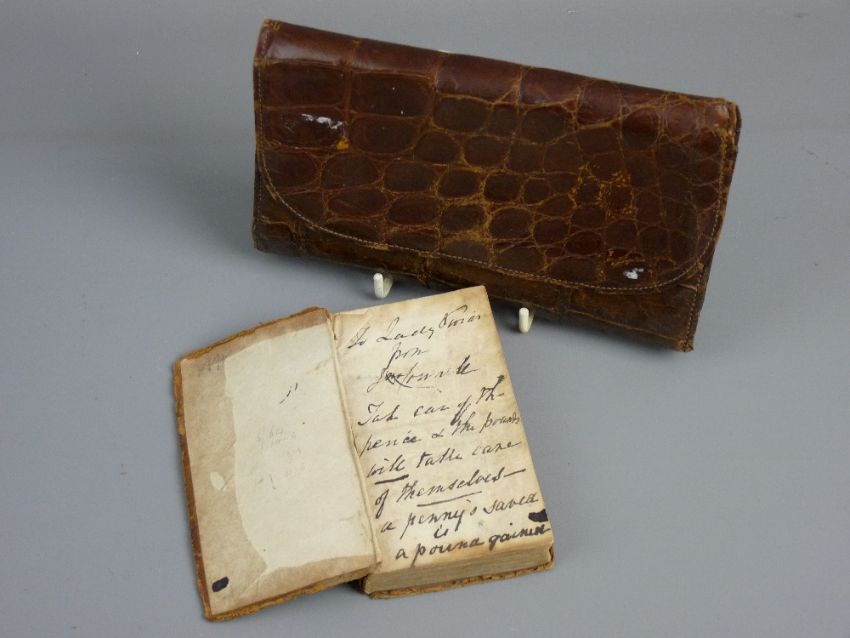 To Lady Vivian
from
Take care of the
pence & the pounds
will take care
of themselves—
a penny's saved
is
a pound gained